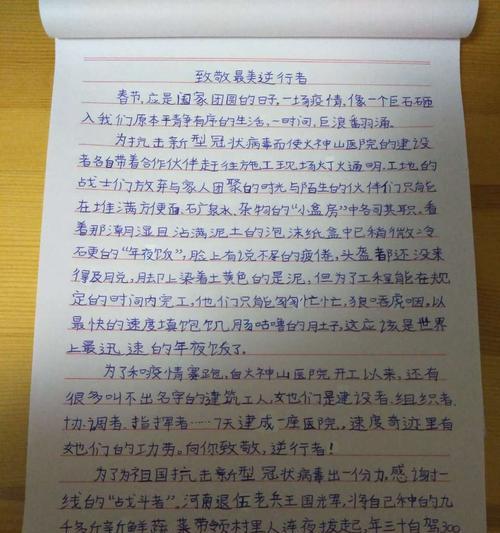 致敬最美逆行者
春节,应是阖家团圆的日子,一场疫情,像一个巨石砸
入我们原本平静有序的生活,一时间,巨浪翻涌。
为抗击新型冠状病毒而使火神山医院的建设
者各自带着合作伙伴赶往施工现场灯火通明,工地的
战士们放弃与家人团聚的时光与陌生的伙伴们只能
在堆满方便面、矿泉水、杂物的“小盒房”中各司其职。看
着那潮湿且沾满泥土的泡沫纸盒中已稍微冷
硬的“年夜饭”,脸上有说不尽的疲倦,头盔都还没来
得及脱,脚上染着土黄色的是泥,但为了工程能在规
定的时间内完工,他们只能匆匆忙忙,狼吞虎咽,以
最快的速度填饱饥肠咕噜的肚子,这应该是世界
上最迅速的年夜饭了。
为了和疫情赛跑,自火神山医院开工以来,还有
很多叫不出名字的建筑工人,她们是建设者、组织者、
协调者、指挥者……7天建成一座医院,速度奇迹里有
她们的功劳。向你致敬,逆行者!
为了为祖国抗击新型冠状病毒出一份力,感谢一
线的“战斗者”。河南退伍老兵王国光军,将自己种的九
千多斤新鲜蔬菜带领村里人连夜拔起,年三十自驾300